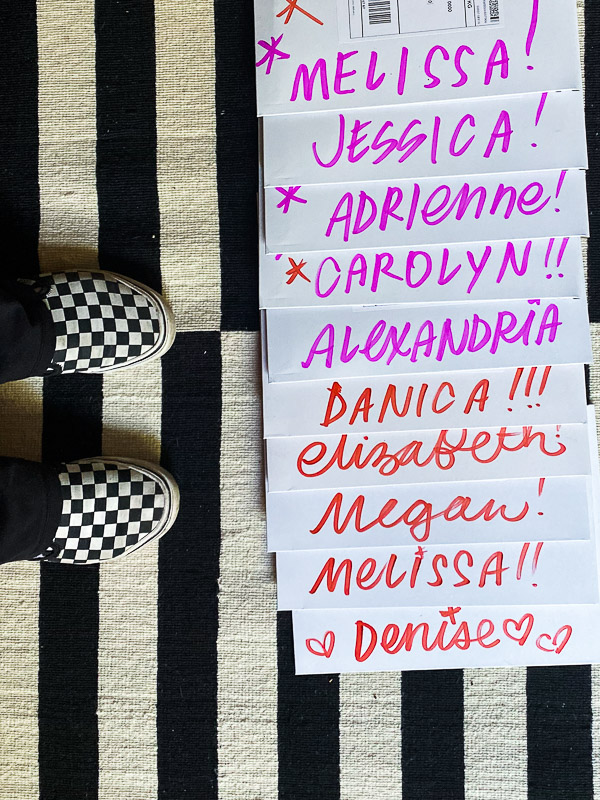 MELISSA!
JESSICA!
ADRIenne!
CAROLYN!!
ALeXANDRIA
DANICA!!!
elizabeth!
Megan!
MeLISSA!!
Denise